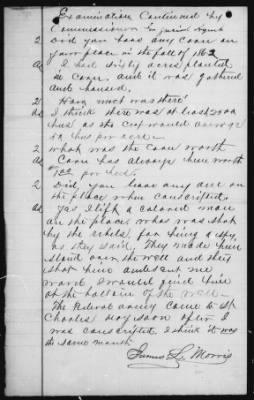 Examination Continued by
Commissioner
Q Did you have any Corn on
your place in the fall of 1862
A I had sixty acres planted
in Corn, and it was gathered
and housed,
Q How much was there
A I think there was at least 2000
bus as the Crop would average
50 bus per acre
Q What was the Corn worth
Corn has always been worth
per bus.
Q Did, you leave any one on
the place when conscripted
A Yes I left a Colored man
on the place who was shot
by the rebels, for being a spy
as they said, They made him
stand over the well and then
shot him and sent me
word I would find him
at the bottom of the well
The Federal army came to St
Charles soon after I
was conscripted, I think it was
the same month
James L. Morris